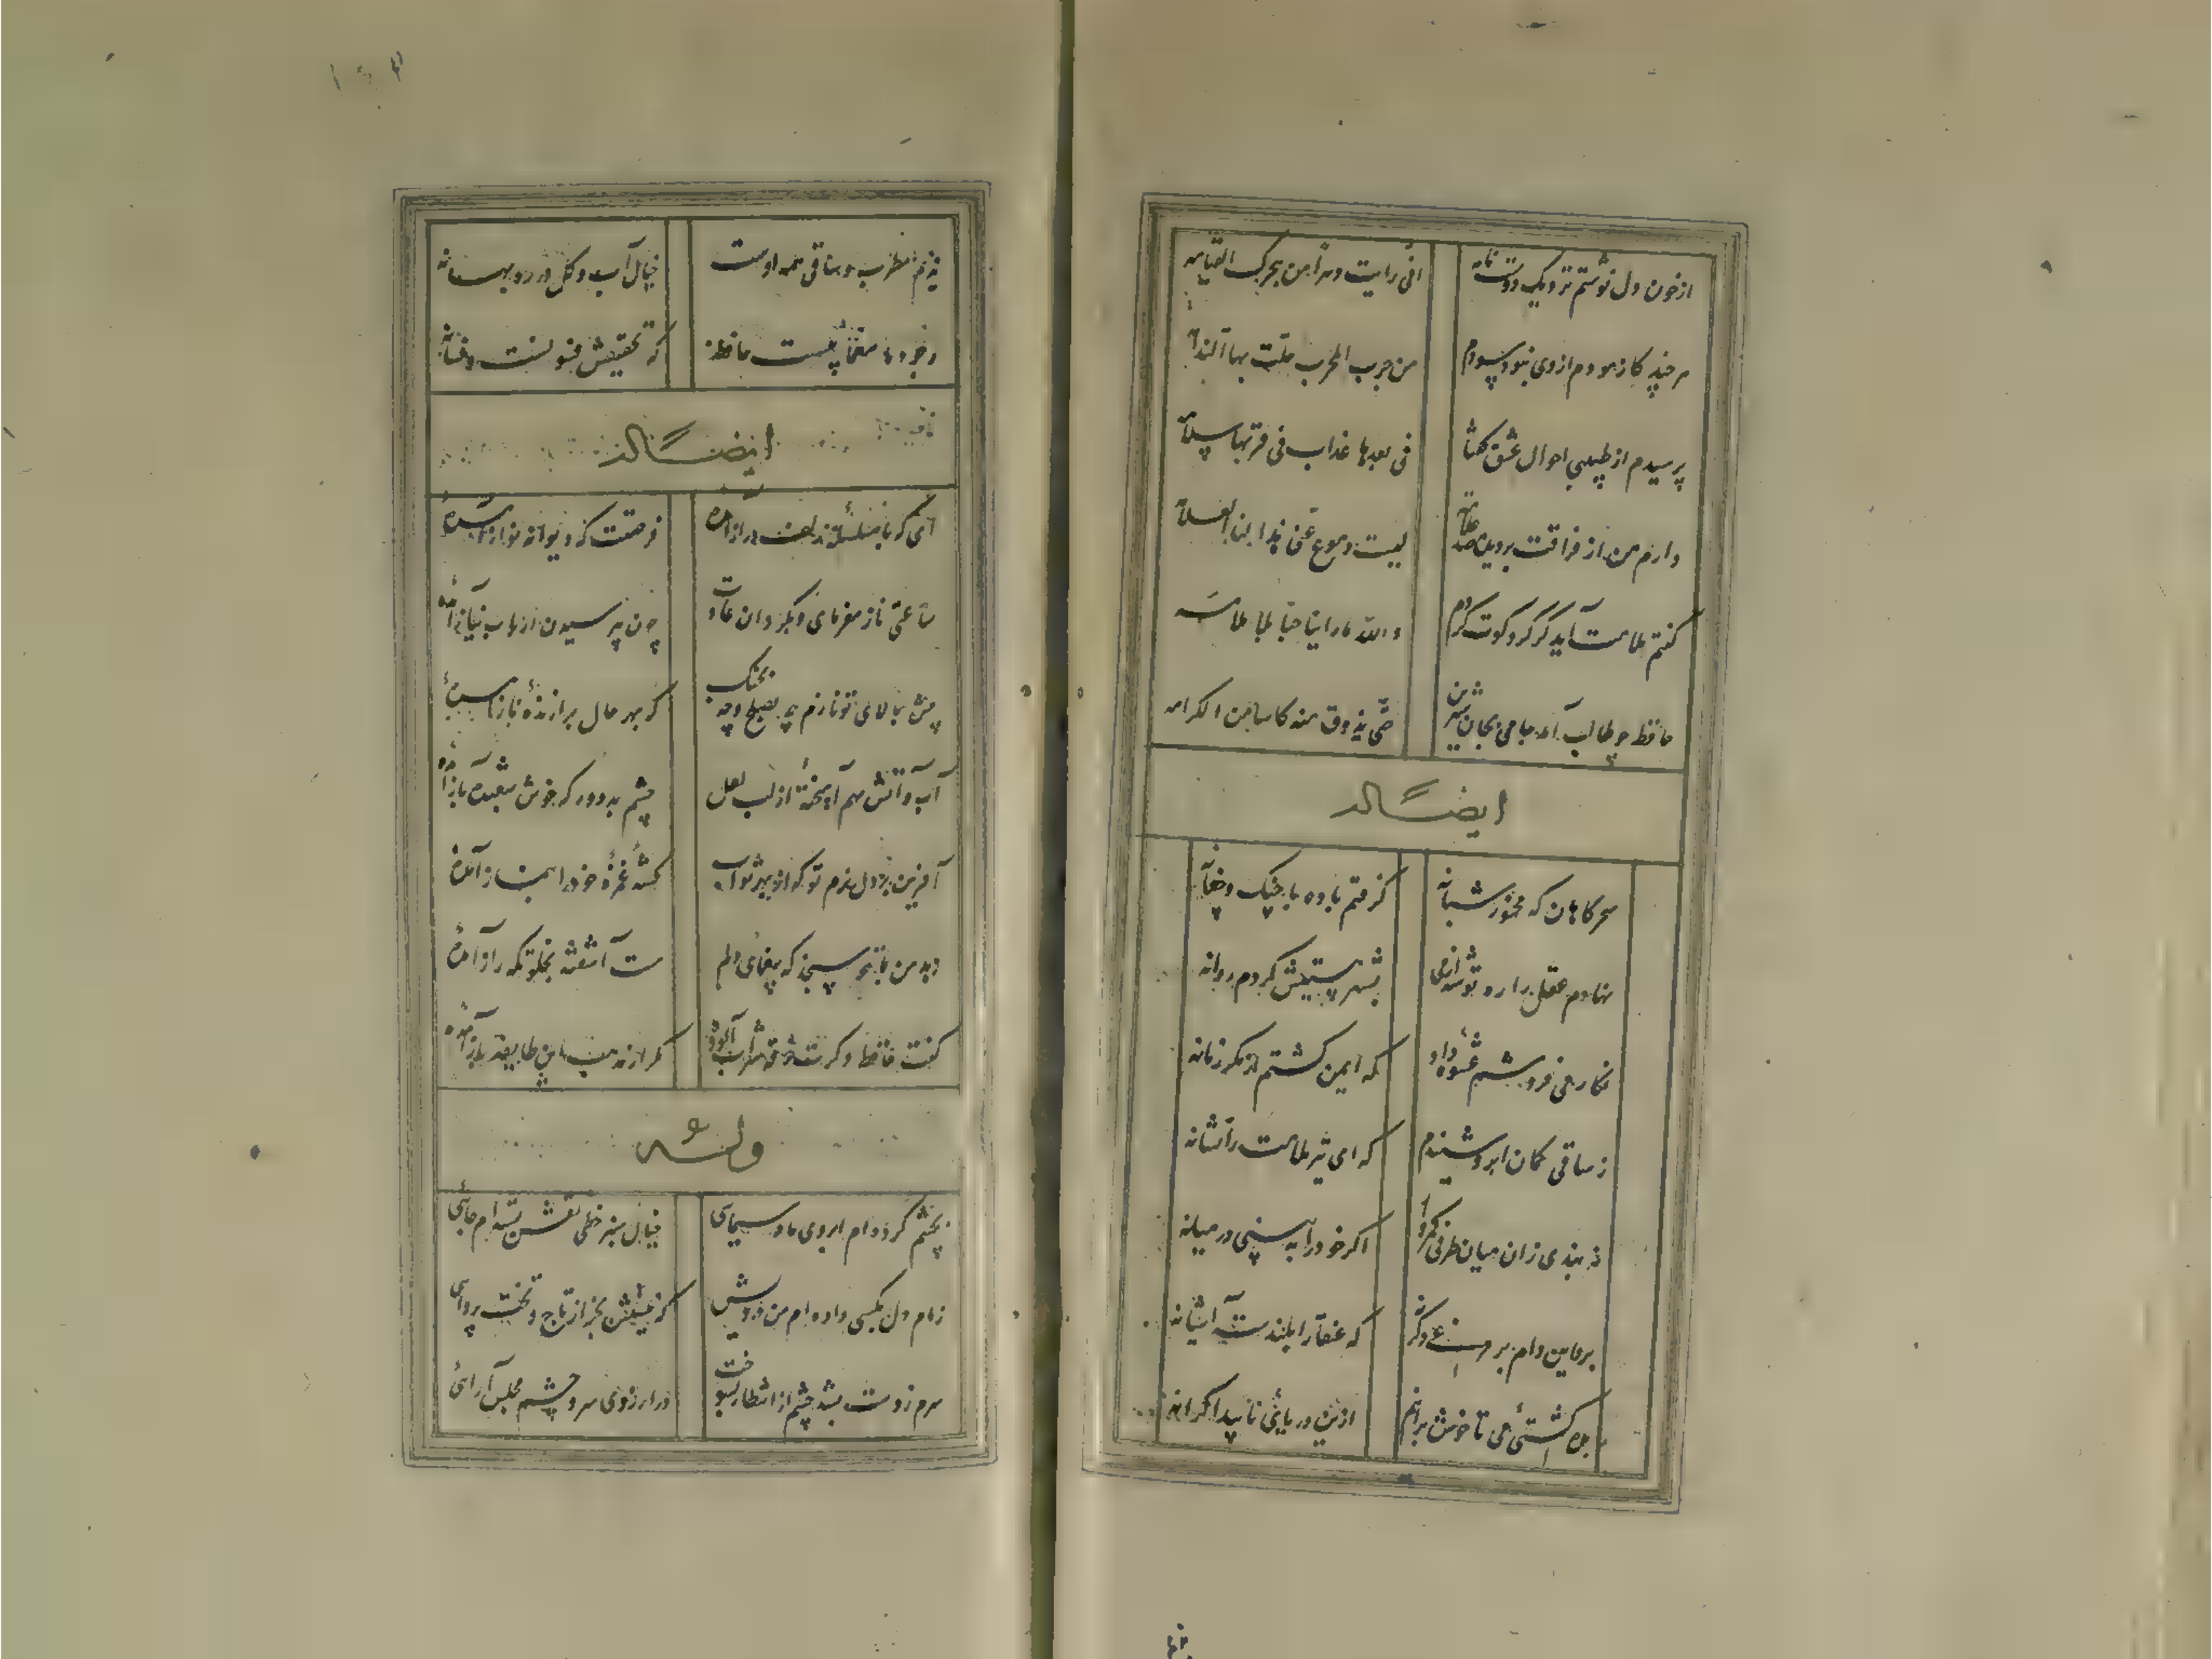 از خون دل نوشتم نزدیک دوست نامه
انی رایت دهرا من هجرک القیامه
هرچند کازمودم از وی نبود سودم
من جرب المجرب حلت بها الندامه
پرسیدم از طبیبی احوال عشق گفتا
فی بعدها عذاب فی قربها سلامه
دارم من از فراقت بر دیده صد علامه
لیست دموع عینی هذا لنا العلامه
گفتم ملامت آید گر گرد کوت گردم
والله ما راینا حبا بلا ملامه
حافظ چو طالب آمد جامی بجان شیرین
حتی یذوق منه کاسا من الکرامه
ایضاً له
سحرگاهان که مخمور شبانه
گرفتم باده با چنگ و چغانه
نهادم عقل را ره توشه از می
بشهر مستیش کردم روانه
نگار می فروشم عشوهٔ داد
که ایمن گشتم از مکر زمانه
ز ساقی کمان ابرو شنیدم
که ای تیر ملامت را نشانه
نه بندی زان میان طرفی کمروار
اگر خود را به بینی در میانه
برو این دام بر مرغی دگر
که عنقا را بلندست آشیانه
بده کشتی می تا خوش برانم
ازین دریای ناپیدا کرانه
ندیم و مطرب و ساقی همه اوست
خیال آب و گل در ره بهانه
وجود ما معمائیست حافظ
که تحقیقش فسونست و فسانه
ایضاً له
ای که با سلسلهٔ زلف دراز آمدهٔ
فرصتت که دیوانه نواز آمدهٔ
ساعتی ناز مفرمای و بگردان عادت
چون بپرسیدن ارباب نیاز آمدهٔ
پیش بالای تو نازم چه بصلح و چه بجنگ
که بهر حال برازندهٔ ناز آمدهٔ
آب و آتش بهم آمیختهٔ از لب لعل
چشم بد دور که خوش شعبده باز آمدهٔ
آفرین بر دل نرم تو که از بهر ثواب
کشتهٔ غمزهٔ خود را بنماز آمدهٔ
زهد من با تو چه سنجد که بیغمای دلم
مست آشفته بخلوتگه راز آمدهٔ
گفت حافظ دگرت خرقه شراب آلودست
مگر از مذهب این طایفه باز آمدهٔ
وله
بچشم کرده‌ام ابروی ماه سیمای
خیال سبز خطی نقش بسته‌ام جائی
زمام دل بکسی داده‌ام من درویش
که نیستش بکس از تاج و تخت پروای
سرم ز دست بشد چشم از انتظار بسوخت
در ارزوی سر و چشم مجلس آرائی